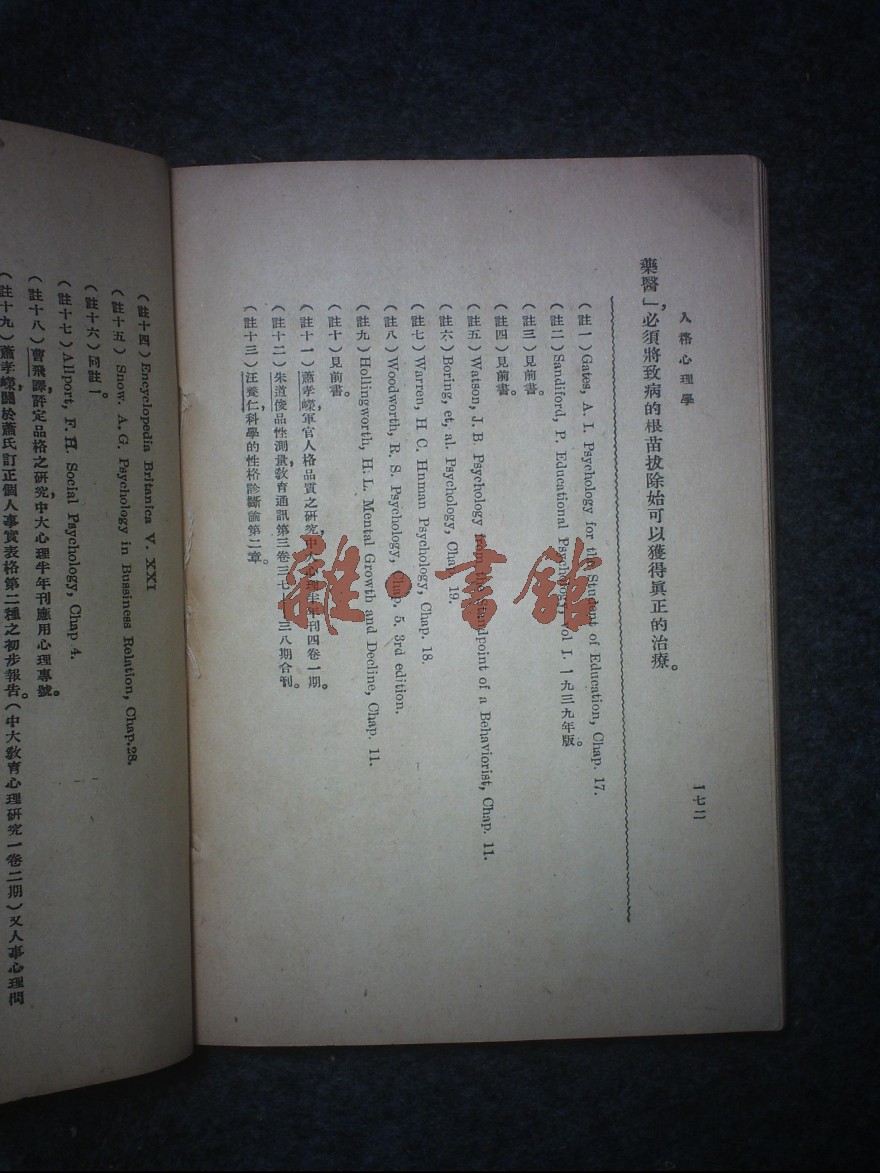 人格心理學
一七二
藥醫」，必須將致病的根苗拔除始可以獲得眞正的治療。
（註一）Gates, A. I. Psychology for the Student of Education, Chap. 17.
（註二）Sandiford, P. Educational Psychology, Vol I. 一九三九年版。
（註三）見前書。
（註四）見前書。
（註五）Watson, J. B. Psychology from the Standpoint of a Behaviorist, Chap. 11.
（註六）Boring, et, al. Psychology, Chap. 19.
（註七）Warren, H. C. Hnman Psychology, Chap. 18.
（註八）Woodworth, R. S. Psychology, Chap, 5. 3rd edition.
（註九）Hollingworth, H. L. Mental Growth and Decline, Chap. 11.
（註十）見前書。
（註十一）蕭孝嶸，軍官人格品質之研究，中大心理半年刊四卷一期。
（註十二）朱道俊，品性測量，敎育通訊第三卷三七、三八期合刊。
（註十三）汪養仁，科學的性格診斷論第二章。
（註十四）Encyclopedia Britanica V. XXI
（註十五）Snow. A. G. Psychology in Bussiness Relation, Chap.28.
（註十六）同註一。
（註十七）Allport, F. H. Social Psychology, Chap 4.
（註十八）曹飛譯，評定品格之研究，中大心理半年刊應用心理專號。
（註十九）蕭孝嶸，關於蕭氏訂正個人事實表格第二種之初步報告。（中大敎育心理研究一卷二期）又人事心理問
雜·書館